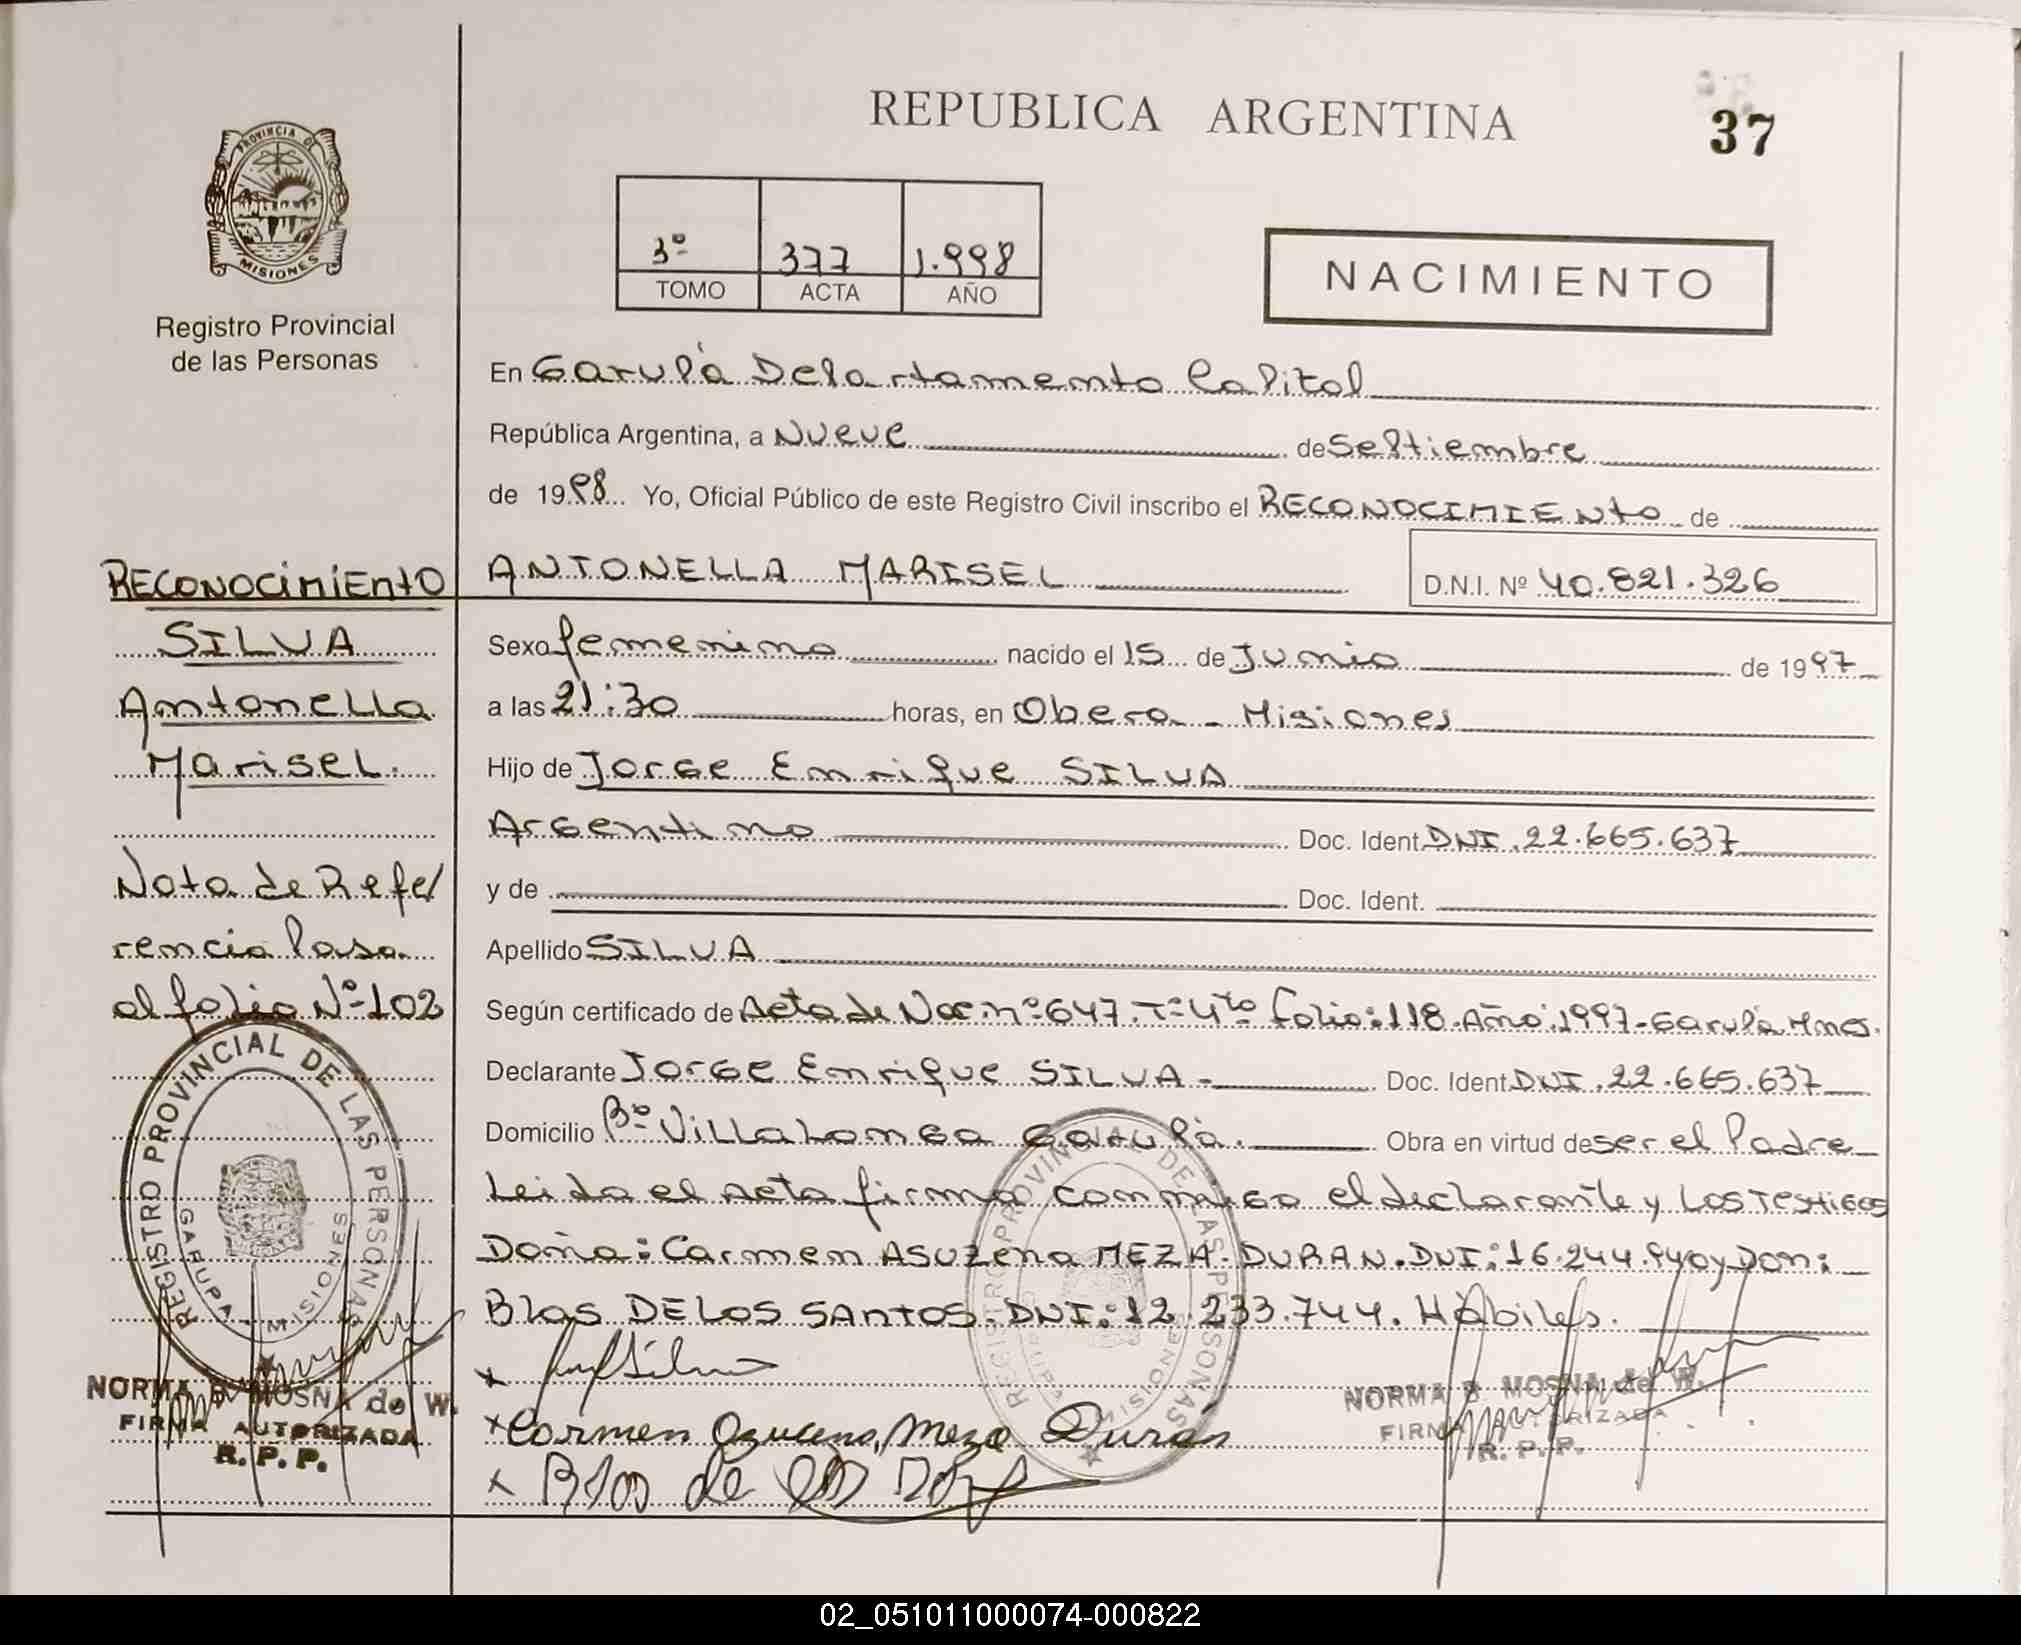 REPUBLICA ARGENTINA
37
PROVINCIA DE
MISIONES
Registro Provincial
de las Personas
3º 377 1.998
TOMO ACTA AÑO
NACIMIENTO
En Garupá Departamento Capital
República Argentina, a Nueve de Septiembre
de 1998 Yo, Oficial Público de este Registro Civil inscribo el RECONOCIMIENTO de
ANTONELLA MARISEL D.N.I. Nº 40.821.326
Sexo femenino nacido el 15 de Junio de 1997
a las 21:30 horas, en Obera - Misiones
Hijo de Jorge Enrique SILVA
Argentino Doc. Ident. DNI. 22.665.637
y de Doc. Ident.
Apellido SILVA
Según certificado de Acta de Nac. nº 647. Tº 4to folio: 118. Año: 1997 - Garupá Mnes.
Declarante Jorge Enrique SILVA - Doc. Ident. DNI. 22.665.637
Domicilio Bº Villalonga Garupá. Obra en virtud de ser el Padre
Leida el Acta firma conmigo el declarante y Los Testigos
Doña: Carmen ASUZena MEZA DURAN. DNI: 16.244.940 y Don:
Blas DE LOS SANTOS. DNI: 12.233.744. Hábiles.
x
x Carmen Azucena, Meza Durán
x Blas de los
RECONOCIMIENTO
SILVA
Antonella
Marisel.
Nota de Refe/
rencia Pasa
al folio Nº 102
REGISTRO PROVINCIAL DE LAS PERSONAS
GARUPA - MISIONES
NORMA B. MOSNA de W.
FIRMA AUTORIZADA
R. P. P.
REGISTRO PROVINCIAL DE LAS PERSONAS
GARUPA - MISIONES
NORMA B. MOSNA de W.
FIRMA AUTORIZADA
R. P. P.
02_051011000074-000822